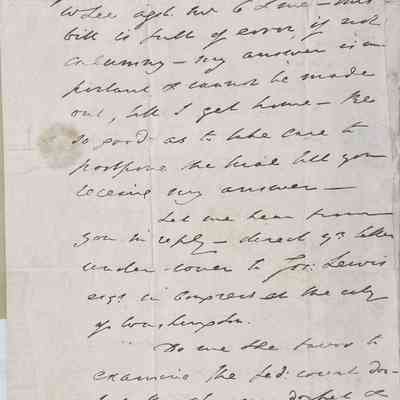 agst me to Love — this
bill is full of error, if not
calumny — my answer is im
portant & cannot be made
out, till I get home — Be
so good as to take care to
postpone the trial till you
receive my answer —
Let me hear from
you in reply — direct yr letter
under cover to Jos: Lewis
esqr in Congress at the city
of Washington.
Do me the favor to
examine the fed: court doc-